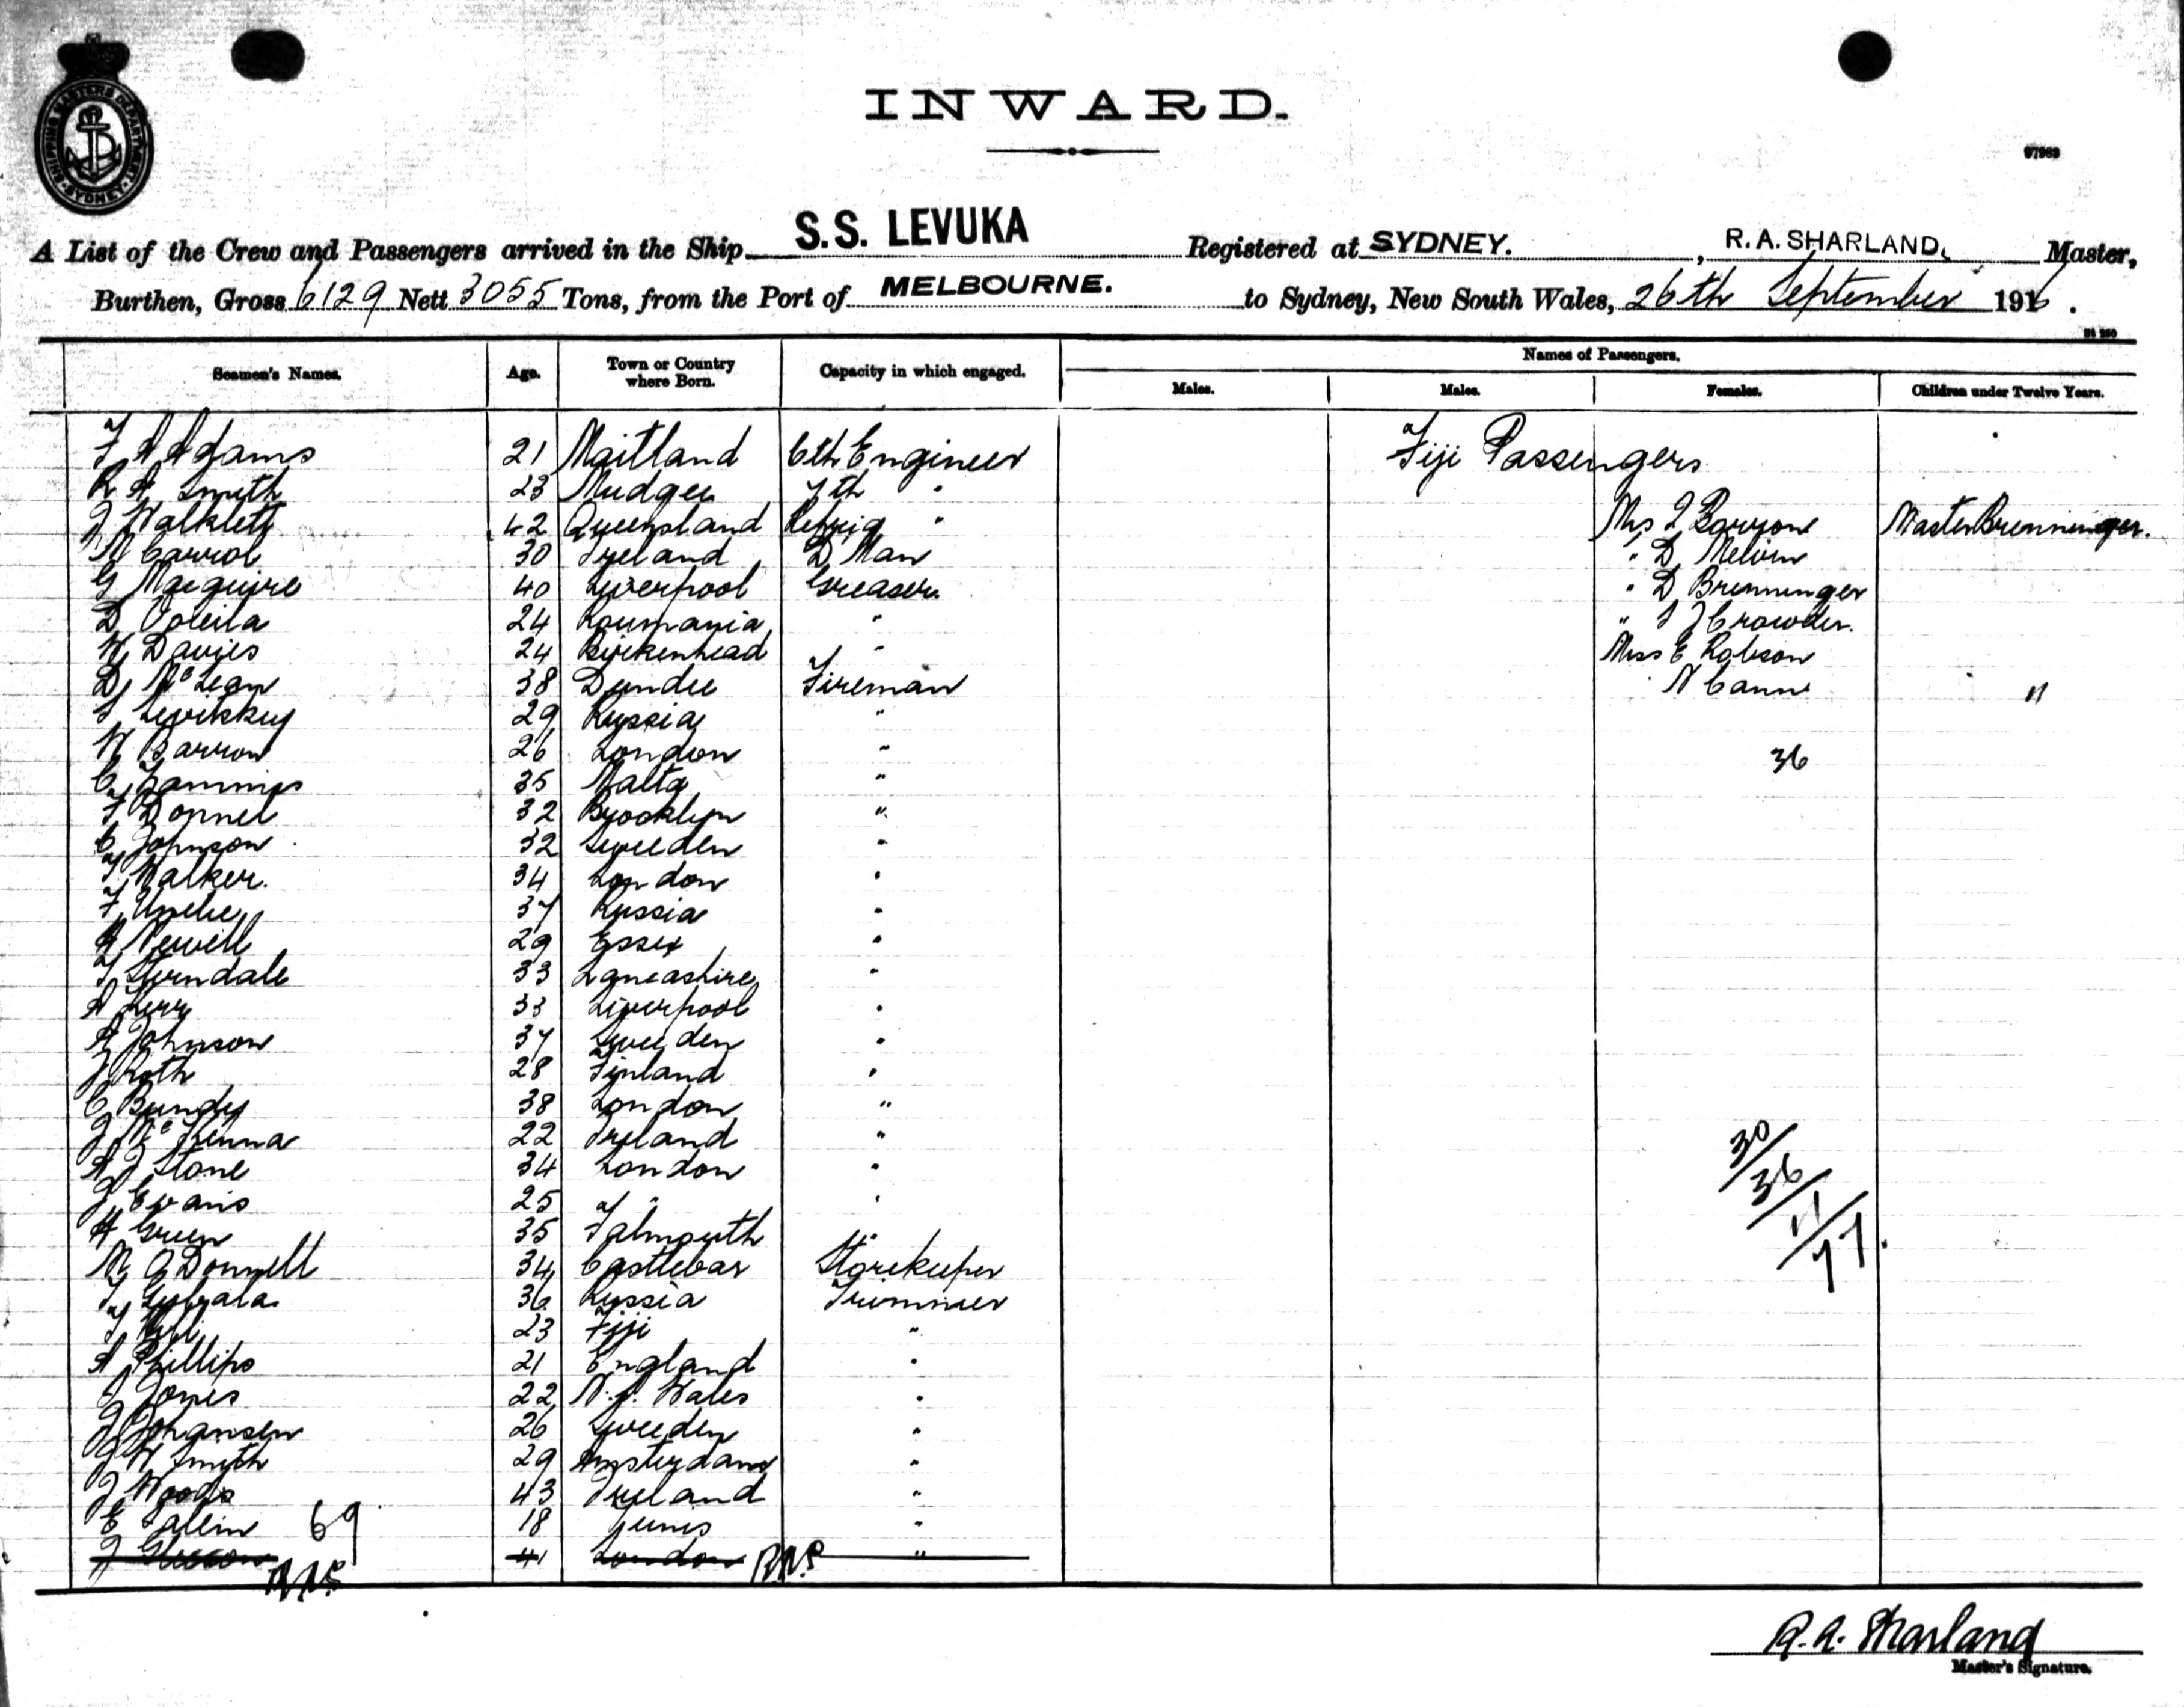 SHIPPING MASTERS DEPARTMENT
SYDNEY
INWARD.
A List of the Crew and Passengers arrived in the Ship S.S. LEVUKA Registered at SYDNEY. , R. A. SHARLAND, Master,
Burthen, Gross 6129 Nett 3055 Tons, from the Port of MELBOURNE. to Sydney, New South Wales, 26th September 1916.
Names of Passengers.
Seamen's Names. Age. Town or Country where Born. Capacity in which engaged. Males. Males. Females. Children under Twelve Years.
F A Adams 21 Maitland 6th Engineer Fiji Passengers
R A Smith 23 Mudgee 7th "
J Walklett 42 Queensland Refrig " Mrs J Barron Master Brenninger.
M Carrol 30 Ireland D Man " D Melvin
G Macguire 40 Liverpool Greaser " D Brenninger
D 24 Roumania " " Crowder.
W Davies 24 Birkenhead " Miss E Robson
D McLean 38 Dundee Fireman N Cann 11
29 Russia "
W Barron 26 London " 36
C Zammit 35 Malta "
F Donnel 32 Brooklyn "
C Johnson 32 Sweeden "
T Walker. 34 London "
F 37 Russia "
A Newell 29 Essex "
T Thorndale 33 Lancashire "
A Terry 33 Liverpool "
A Johnson 37 Sweeden "
J Roth 28 Finland "
C Bundy 38 London "
J McKenna 22 Ireland " 30/36/11/77.
A J Stone 34 London "
J Evans 25 " "
H Green 35 Falmouth "
M O Donnell 34 Castlebar Storekeeper
36 Russia Trimmer
23 Fiji "
A Phillips 21 England "
J Jones 22 N. S. Wales "
J Johansen 26 Sweeden "
J W Smith 29 Amsterdam "
J Woods 43 Ireland "
E Tallin 69 18 Tunis "
41 London "
R. A. Sharland
Master's Signature.